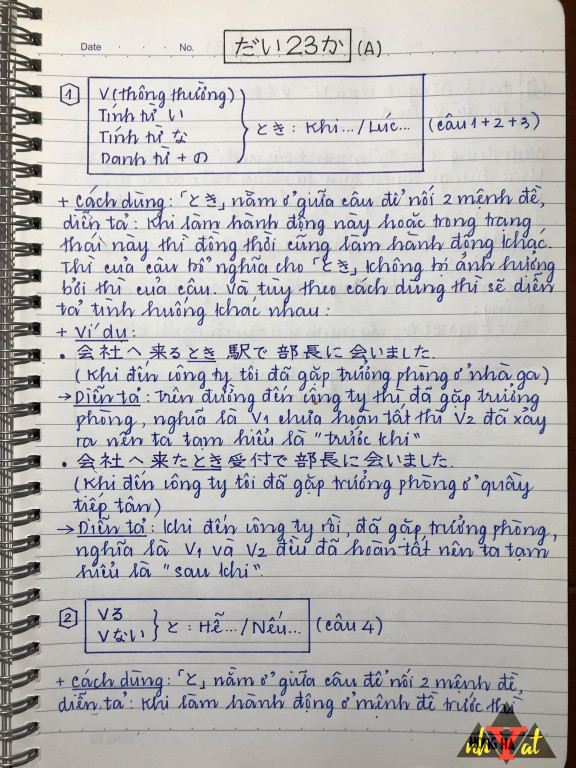 Date No. だい23か (A)
1 V (thông thường)
Tính từ い
Tính từ な
Danh từ + の
とき : Khi... / Lúc... (câu 1+2+3)
+ Cách dùng : 「とき」 nằm ở giữa câu để nối 2 mệnh đề,
diễn tả : Khi làm hành động này hoặc trong trạng
thái này thì đồng thời cũng làm hành động khác.
Thì của câu bổ nghĩa cho 「とき」 không bị ảnh hưởng
bởi thì của câu. Và tùy theo cách dùng thì sẽ diễn
tả tình huống khác nhau :
+ Ví dụ :
• 会社へ来るとき 駅で部長に会いました.
(Khi đến công ty tôi đã gặp trưởng phòng ở nhà ga)
→ Diễn tả : trên đường đến công ty thì đã gặp trưởng
phòng, nghĩa là V1 chưa hoàn tất thì V2 đã xảy
ra nên ta tạm hiểu là "trước khi"
• 会社へ来たとき受付で部長に会いました.
(Khi đến công ty tôi đã gặp trưởng phòng ở quầy
tiếp tân)
→ Diễn tả : Khi đến công ty rồi, đã gặp trưởng phòng,
nghĩa là V1 và V2 đều đã hoàn tất nên ta tạm
hiểu là "sau khi".
2 Vる
Vない
と : Hễ... / Nếu... (câu 4)
+ Cách dùng : 「と」 nằm ở giữa câu để nối 2 mệnh đề,
diễn tả : Khi làm hành động ở mệnh đề trước thì